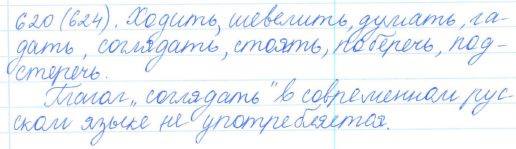 620 (624). Ходить, шевелить, думать, га-
дать, соглядать, стоять, поберечь, под-
стеречь.
Глагол „соглядать" в современном рус-
ском языке не употребляется.